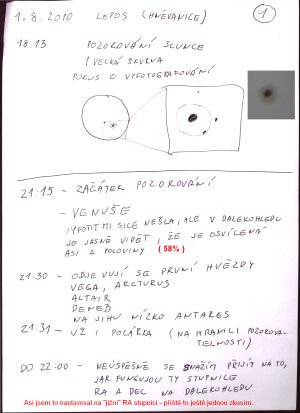 1.8.2010 LEPOS (HNĚVANICE) 1
18:13 POZOROVÁNÍ SLUNCE
1 VELKÁ SKVRNA
POKUS O VYFOTOGRAFOVÁNÍ
21:15 - ZAČÁTEK POZOROVÁNÍ
- VENUŠE
VYFOTIT MI SICE NEŠLA, ALE V DALEKOHLEDU
JO JASNĚ VIDĚT, ŽE JE OSVÍCENÁ
ASI Z POLOVINY (58%)
21:30 - ODJEVUJÍ SE PRVNÍ HVĚZDY
VEGA, ARCTURUS
ALTAIR
DENEB
NA JIHU NÍZKO ANTARES
21:31 - UŽ I POLÁRKA (NA HRANICI POZOROVA-
TELNOSTI)
DO 22:00 - NEÚSPĚŠNĚ SE SNAŽÍM PŘIJÍT NA TO,
JAK FUNGUJOU TY STUPNICE
RA A DEC NA DALEKOHLEDU
Asi jsem to nastavoval na "jižní" RA stupnici - příště to ještě jednou zkusím.